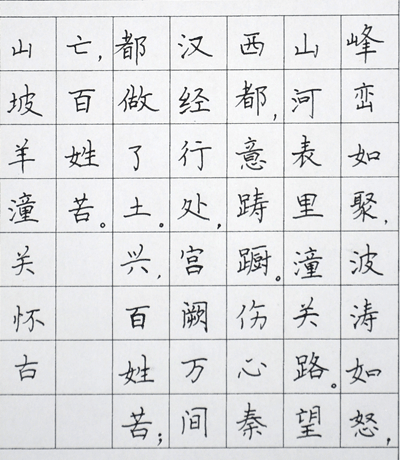 峰峦如聚,波涛如怒,
山河表里潼关路。望
西都,意踌蹰。伤心秦
汉经行处,宫阙万间
都做了土。兴,百姓苦;
亡,百姓苦。
山坡羊潼关怀古